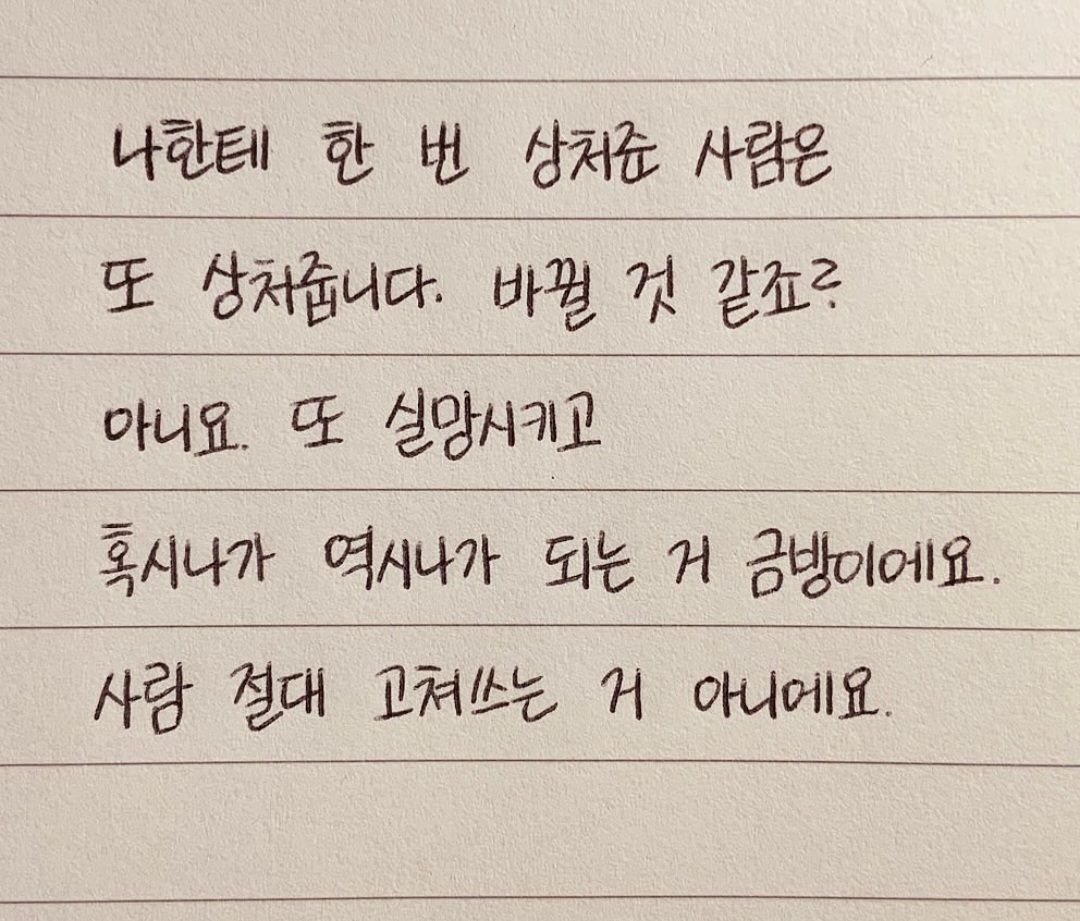 나한테 한 번 상처준 사람은
또 상처줍니다. 바뀔 것 같죠?
아니요. 또 실망시키고
혹시나가 역시나가 되는 거 금방이에요.
사람 절대 고쳐쓰는 거 아니에요.